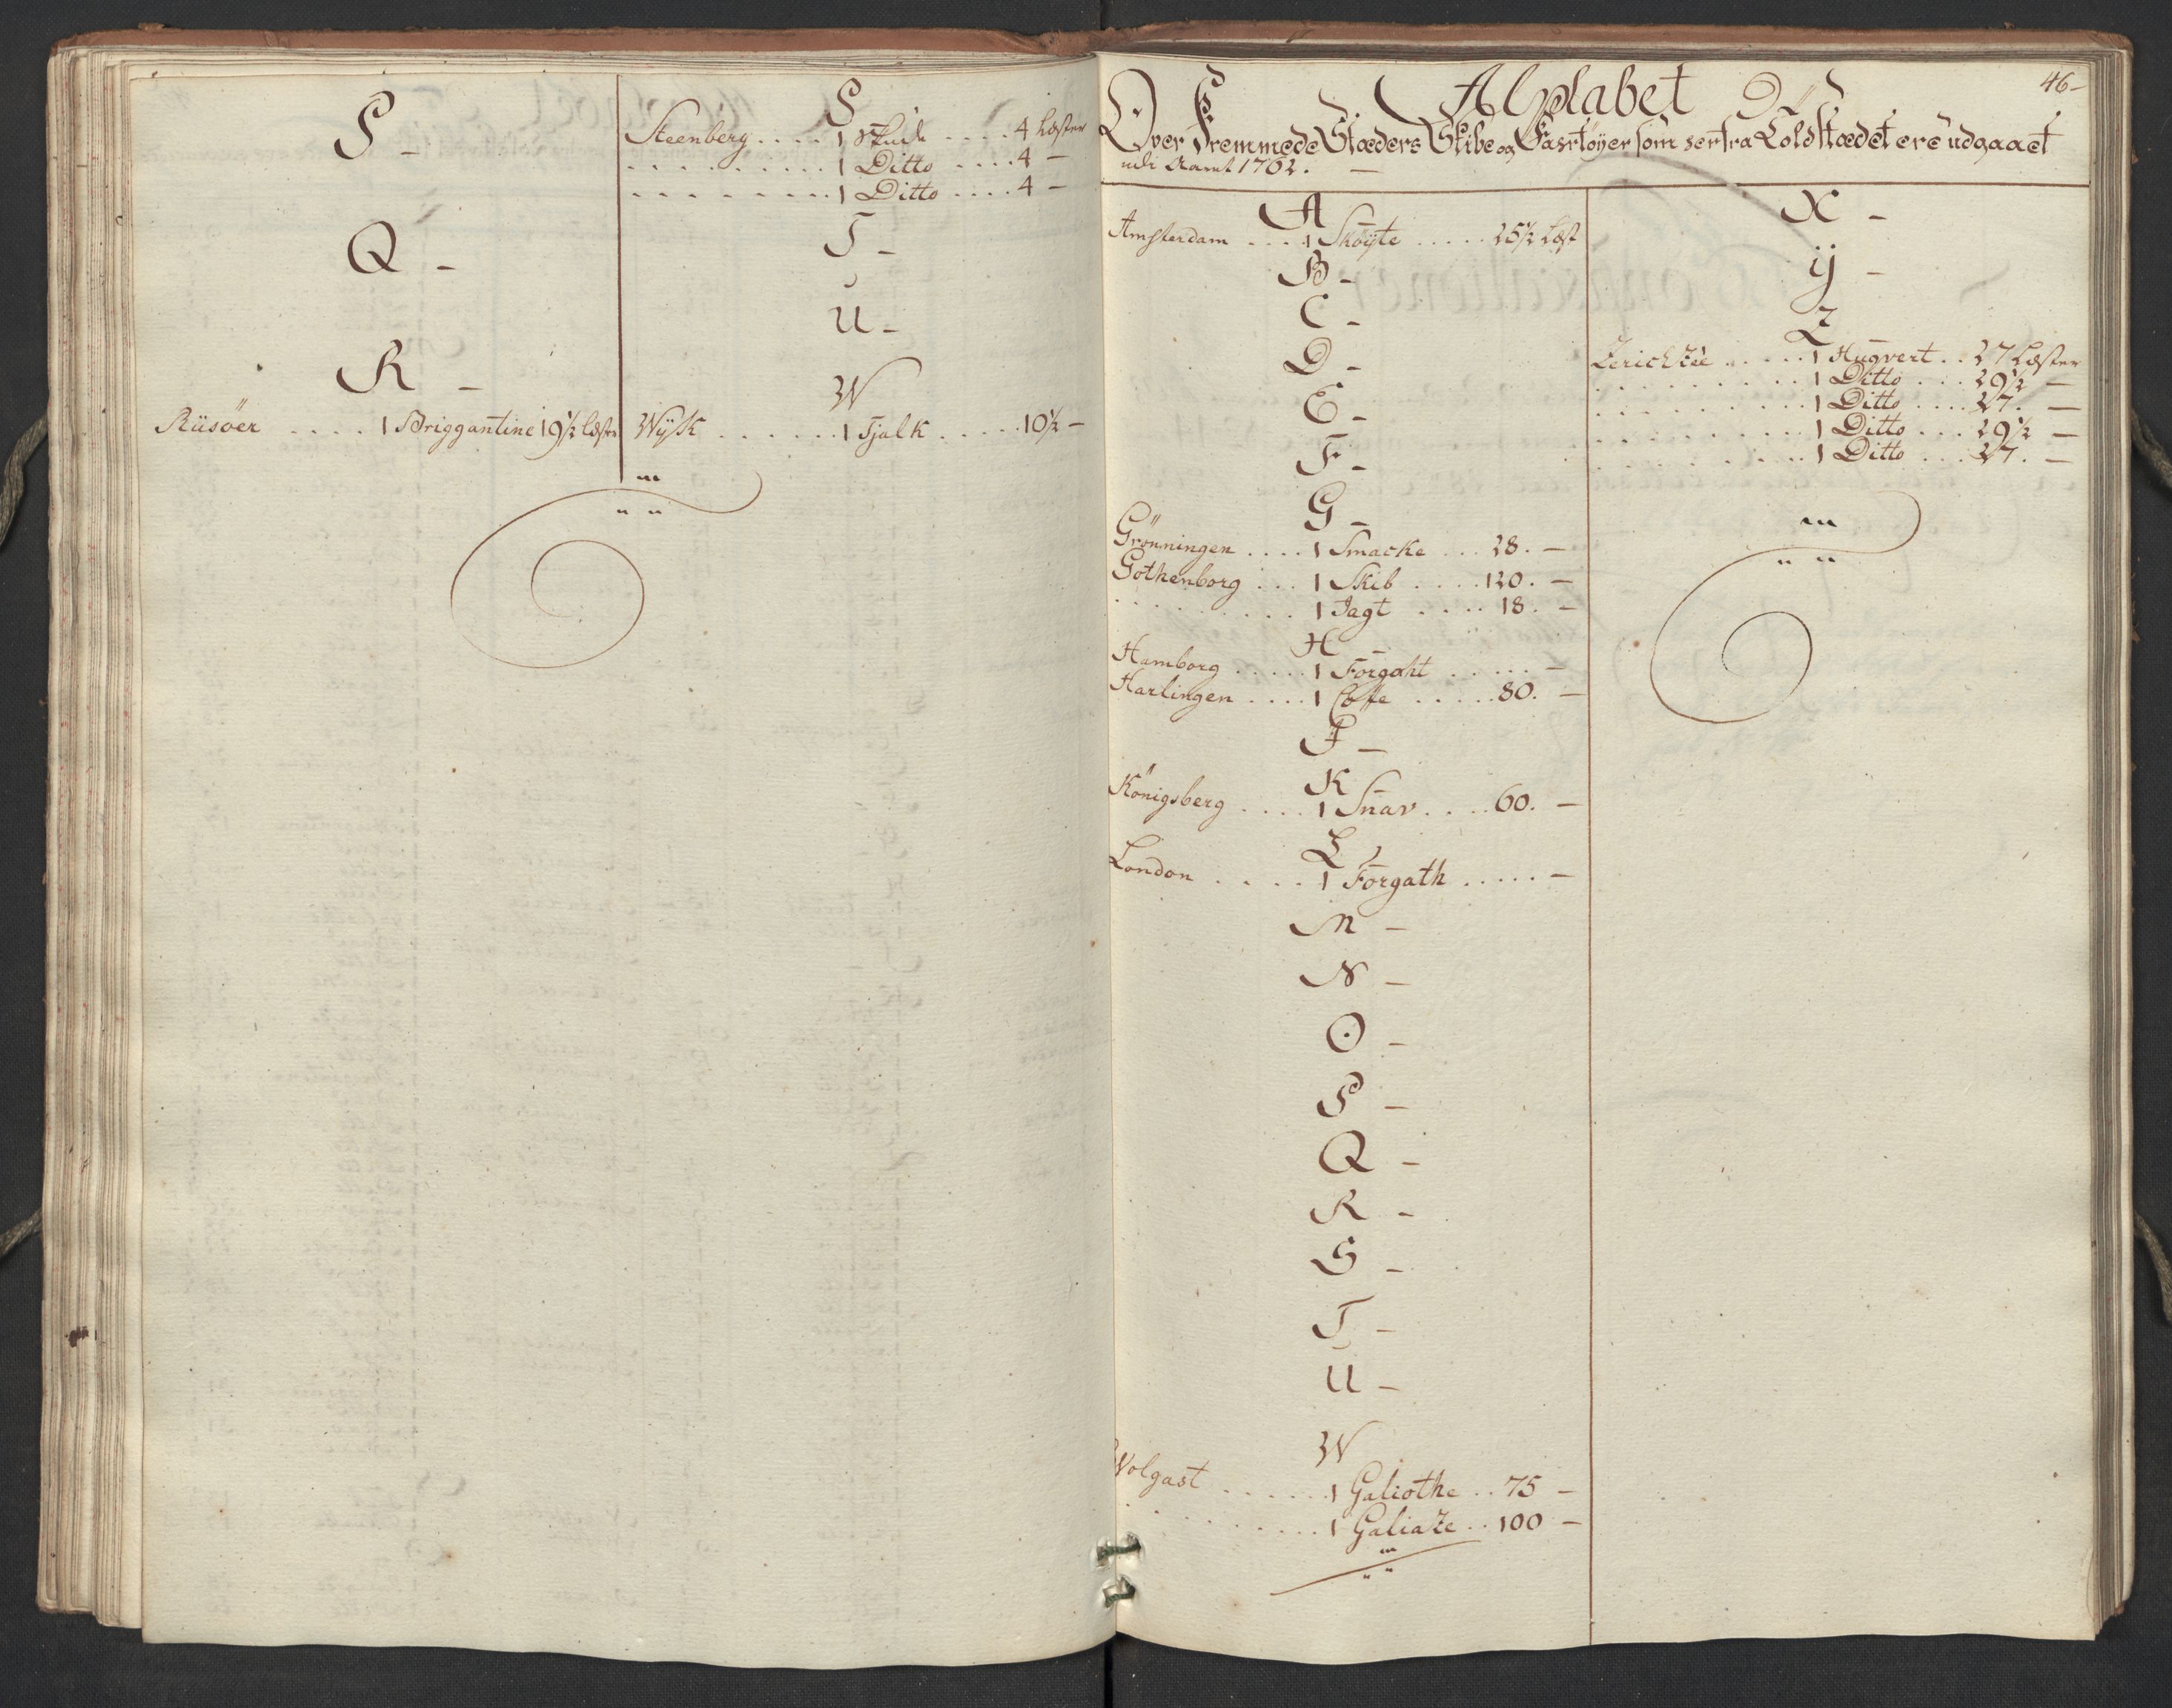 P -
Q -
R -
Riisöer .... 1 Briggantine 19½ læster
S
Steenberg .... 1 Skude .... 4 Læster
.......... 1 Ditto .... 4 -
.......... 1 Ditto .... 4 -
T -
U -
W
Wyk ...... 1 Tjalk ..... 10½ -
46-
Alphabet
Over Fremmede Stæders Skibe og Fartöyer som her fra Toldstædet ere udgaaet
udi Aaret 1762. -
A
Amsterdam .... 1 Sköyte ..... 25½ Læst
B -
C -
D -
E -
F -
G -
Grönningen .... 1 Smacke ... 28. -
Gothenborg ... 1 Skib .... 120. -
.......... 1 Jagt .... 18. -
H
Hamborg ..... 1 Forgaht ...... -
Harlingen .... 1 Coffe ..... 80. -
I -
K
Königsberg .... 1 Snav .... 60. -
L
London .... 1 Forgath ..... -
M -
N -
O -
P -
Q -
R -
S -
T -
U -
W
Wolgast ...... 1 Galiothe .. 75 -
.......... 1 Galiaze .. 100 -
X -
ÿ -
Z
Zerichzée ..... 1 Hugvert .. 27 Læster
.......... 1 Ditto ... 29½ -
.......... 1 Ditto .... 27. -
.......... 1 Ditto ... 29½ -
.......... 1 Ditto ... 27. -